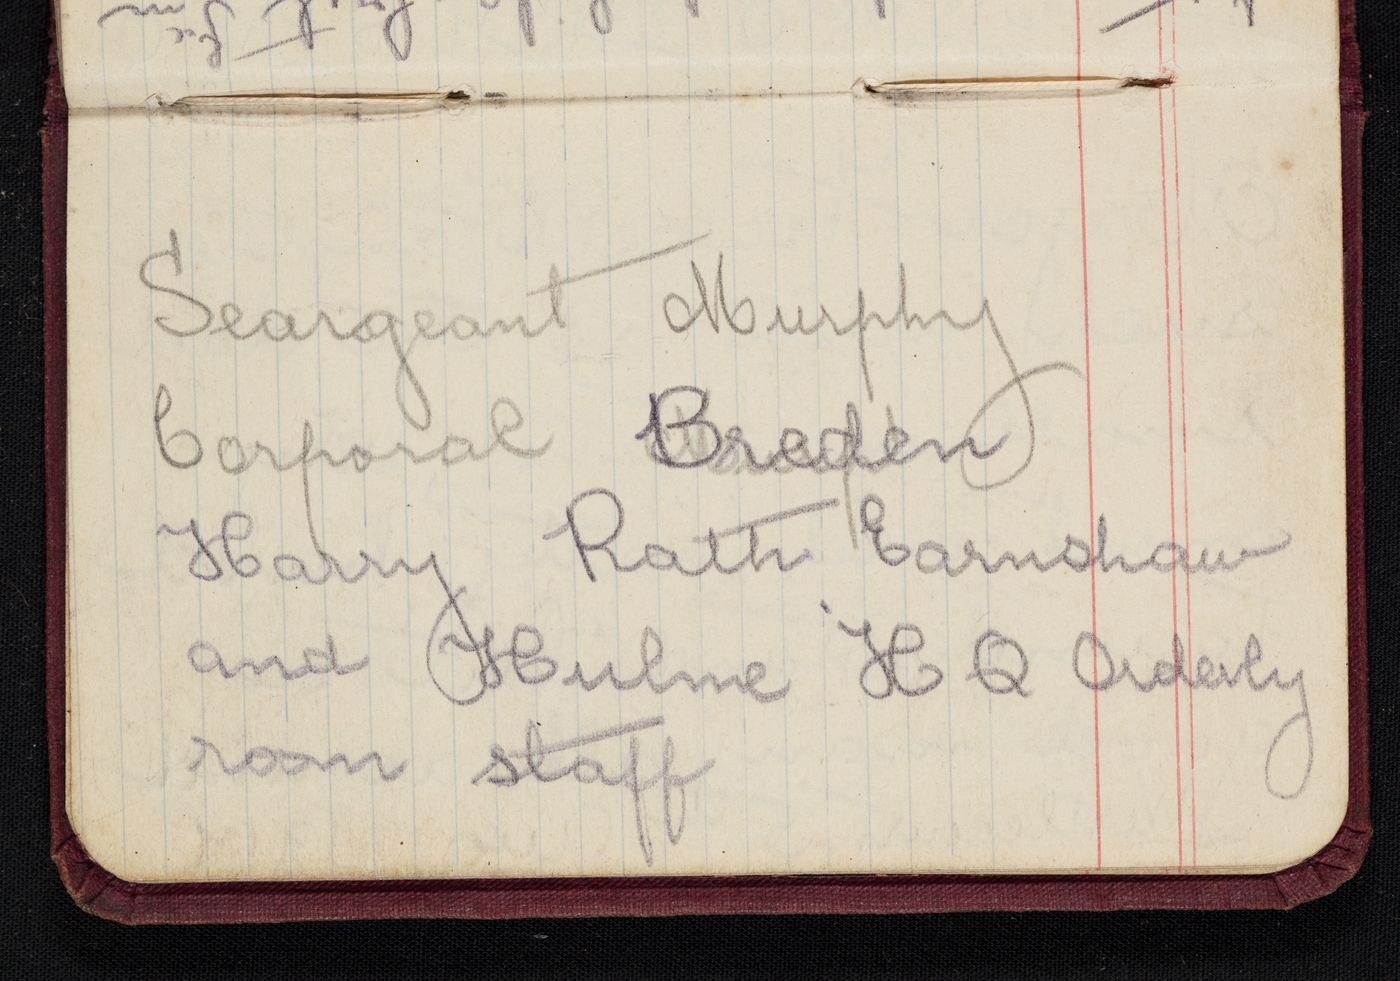 Seargeant Murphy
Corporal Breden
Harry Rath Earnshaw
and Hulme H Q Orderly
room staff